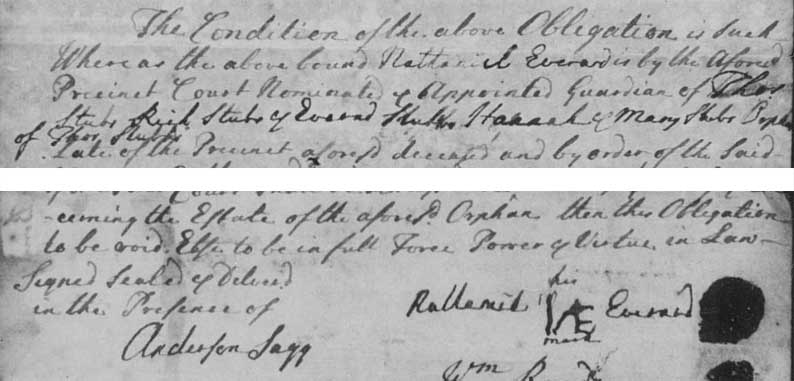 The Condition of the above Obligation is such
Where as the above bound Nathaniel Everard is by the Afores.d
Precinct Court Nominated & Appointed Guardian of Tho.s
Stubs Rich Stubs & Everard Stubbs Hannah & Mary Stubs Orphans
of Thos. Stubbs
Late of the Precinct afores.d deceased and by order of the said
Court
-cerning the Estate of the afores.d Orphan then this Obligation
to be void. Else to be in full Force Power & Virtue in Law—
Signed Sealed & Deliver'd
in the Presence of
his
Nathaniel Everard
mark
Anderson Sagg
Wm